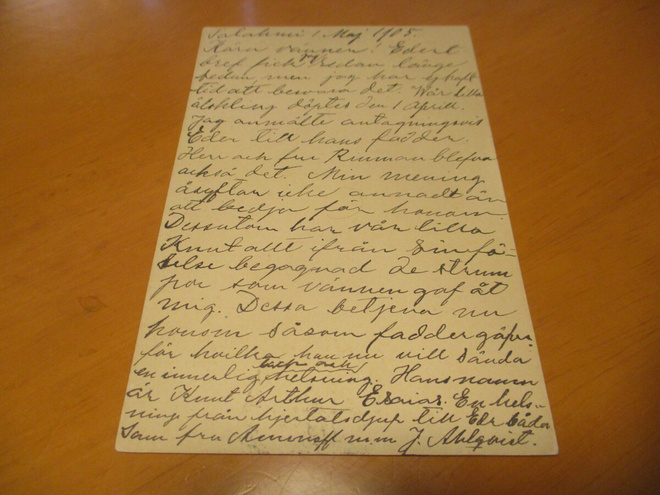 Salahmi 1 Maj 1905.
Kära vännen! Edert
bref fick sedan länge
sedan men jag har ej haft
tid att besvara det. Vår lilla
älskling döptes den 1 April.
Jag anmälte antagningsvis
Eder till hans fadder.
Herr och fru Rinman blefvo
också det. Min mening
åsyftar icke annadt än
att bedja för honom.
Dessutom har vår lilla
Knut allt ifrån sin fö-
delse begagnad de strum
por som vännen gaf åt
mig. Dessa betjena nu
honom såsom faddergåfva
för hvilka han nu vill sända
en innerlig tack och helsning. Hans namn
är Knut Arthur Esaias. En hels-
ning från hjertats djup till Eder båda
som fru Aminoff m.m J. Ahlqvist.